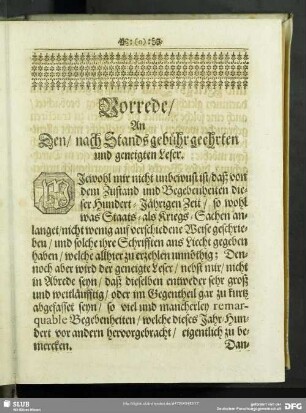 Vorrede/
An
Den/ nach Stands gebühr geehrten
und geneigten Leser.
Jewohl mir nicht unbewust ist/ daß von
dem Zustand und Begebenheiten die-
ser Hundert-Jährigen Zeit/ so wohl
was Staats- als Kriegs-Sachen an-
langet/ nicht wenig auf verschiedene Weise geschrie-
ben/ und solche ihre Schrifften ans Liecht gegeben
haben/ welche allhier zu erzehlen unnöthig; Den-
noch aber wird der geneigte Leser/ nebst mir/ nicht
in Abrede seyn/ daß dieselben entweder sehr groß
und weitläufftig/ oder im Gegentheil gar zu kurtz
abgefasset seyn/ so viel und mancherley remar-
quable Begebenheiten/ welche dieses Jahr-Hun-
dert vor andern hervorgebracht/ eigentlich zu be-
mercken.
Dan-
SLUB
Wir führen Wissen.
gefördert von der
DFG